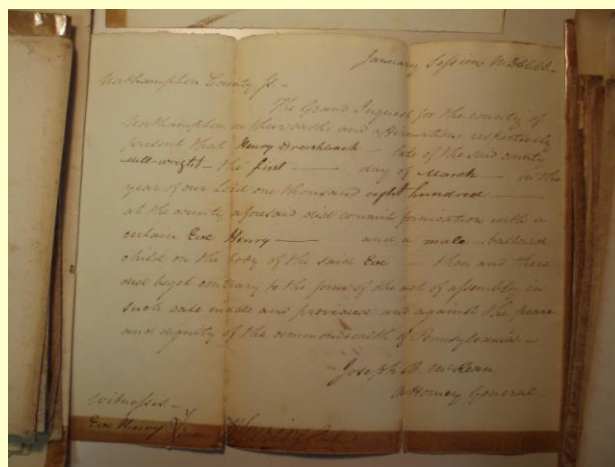 January Sessions MDCCCI.
Northampton County Ss —
The Grand Inquest for the county of
Northampton on their oaths and affirmations respectively
present that Henry — late of the said county
Mill-wright — the first — day of March — in the
year of our Lord one thousand eight hundred —
at the county aforesaid did commit fornication with a
certain Eve Henry — and a male bastard
child on the body of the said Eve — then and there
did beget contrary to the form of the act of assembly in
such case made and provided and against the peace
and dignity of the commonwealth of Pennsylvania —
Joseph B. McKean
Attorney General —
Witnesses —
Eve Henry